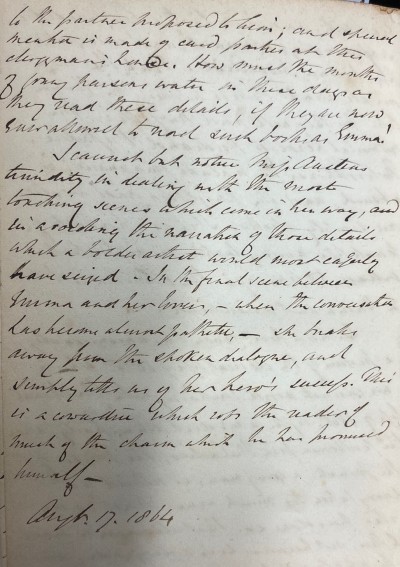 to the partner proposed to him; and special
mention is made of card parties at this
clergyman's house. How must the mouths
of young parsons water in these days as
they read these details, if they are now
ever allowed to read such books as Emma!
I cannot but notice Miss Austens
timidity in dealing with the most
touching scenes which come in her way, and
in avoiding the narration of those details
which a bolder artist would most eagerly
have seized. - In the final scene between
Emma and her lover, - when the conversation
has become almost pathetic, - she breaks
away from the spoken dialogue, and
simply tells us of her hero's success. This
is a cowardice which robs the reader of
much of the charm which he has promised
himself -
Augt. 17. 1864